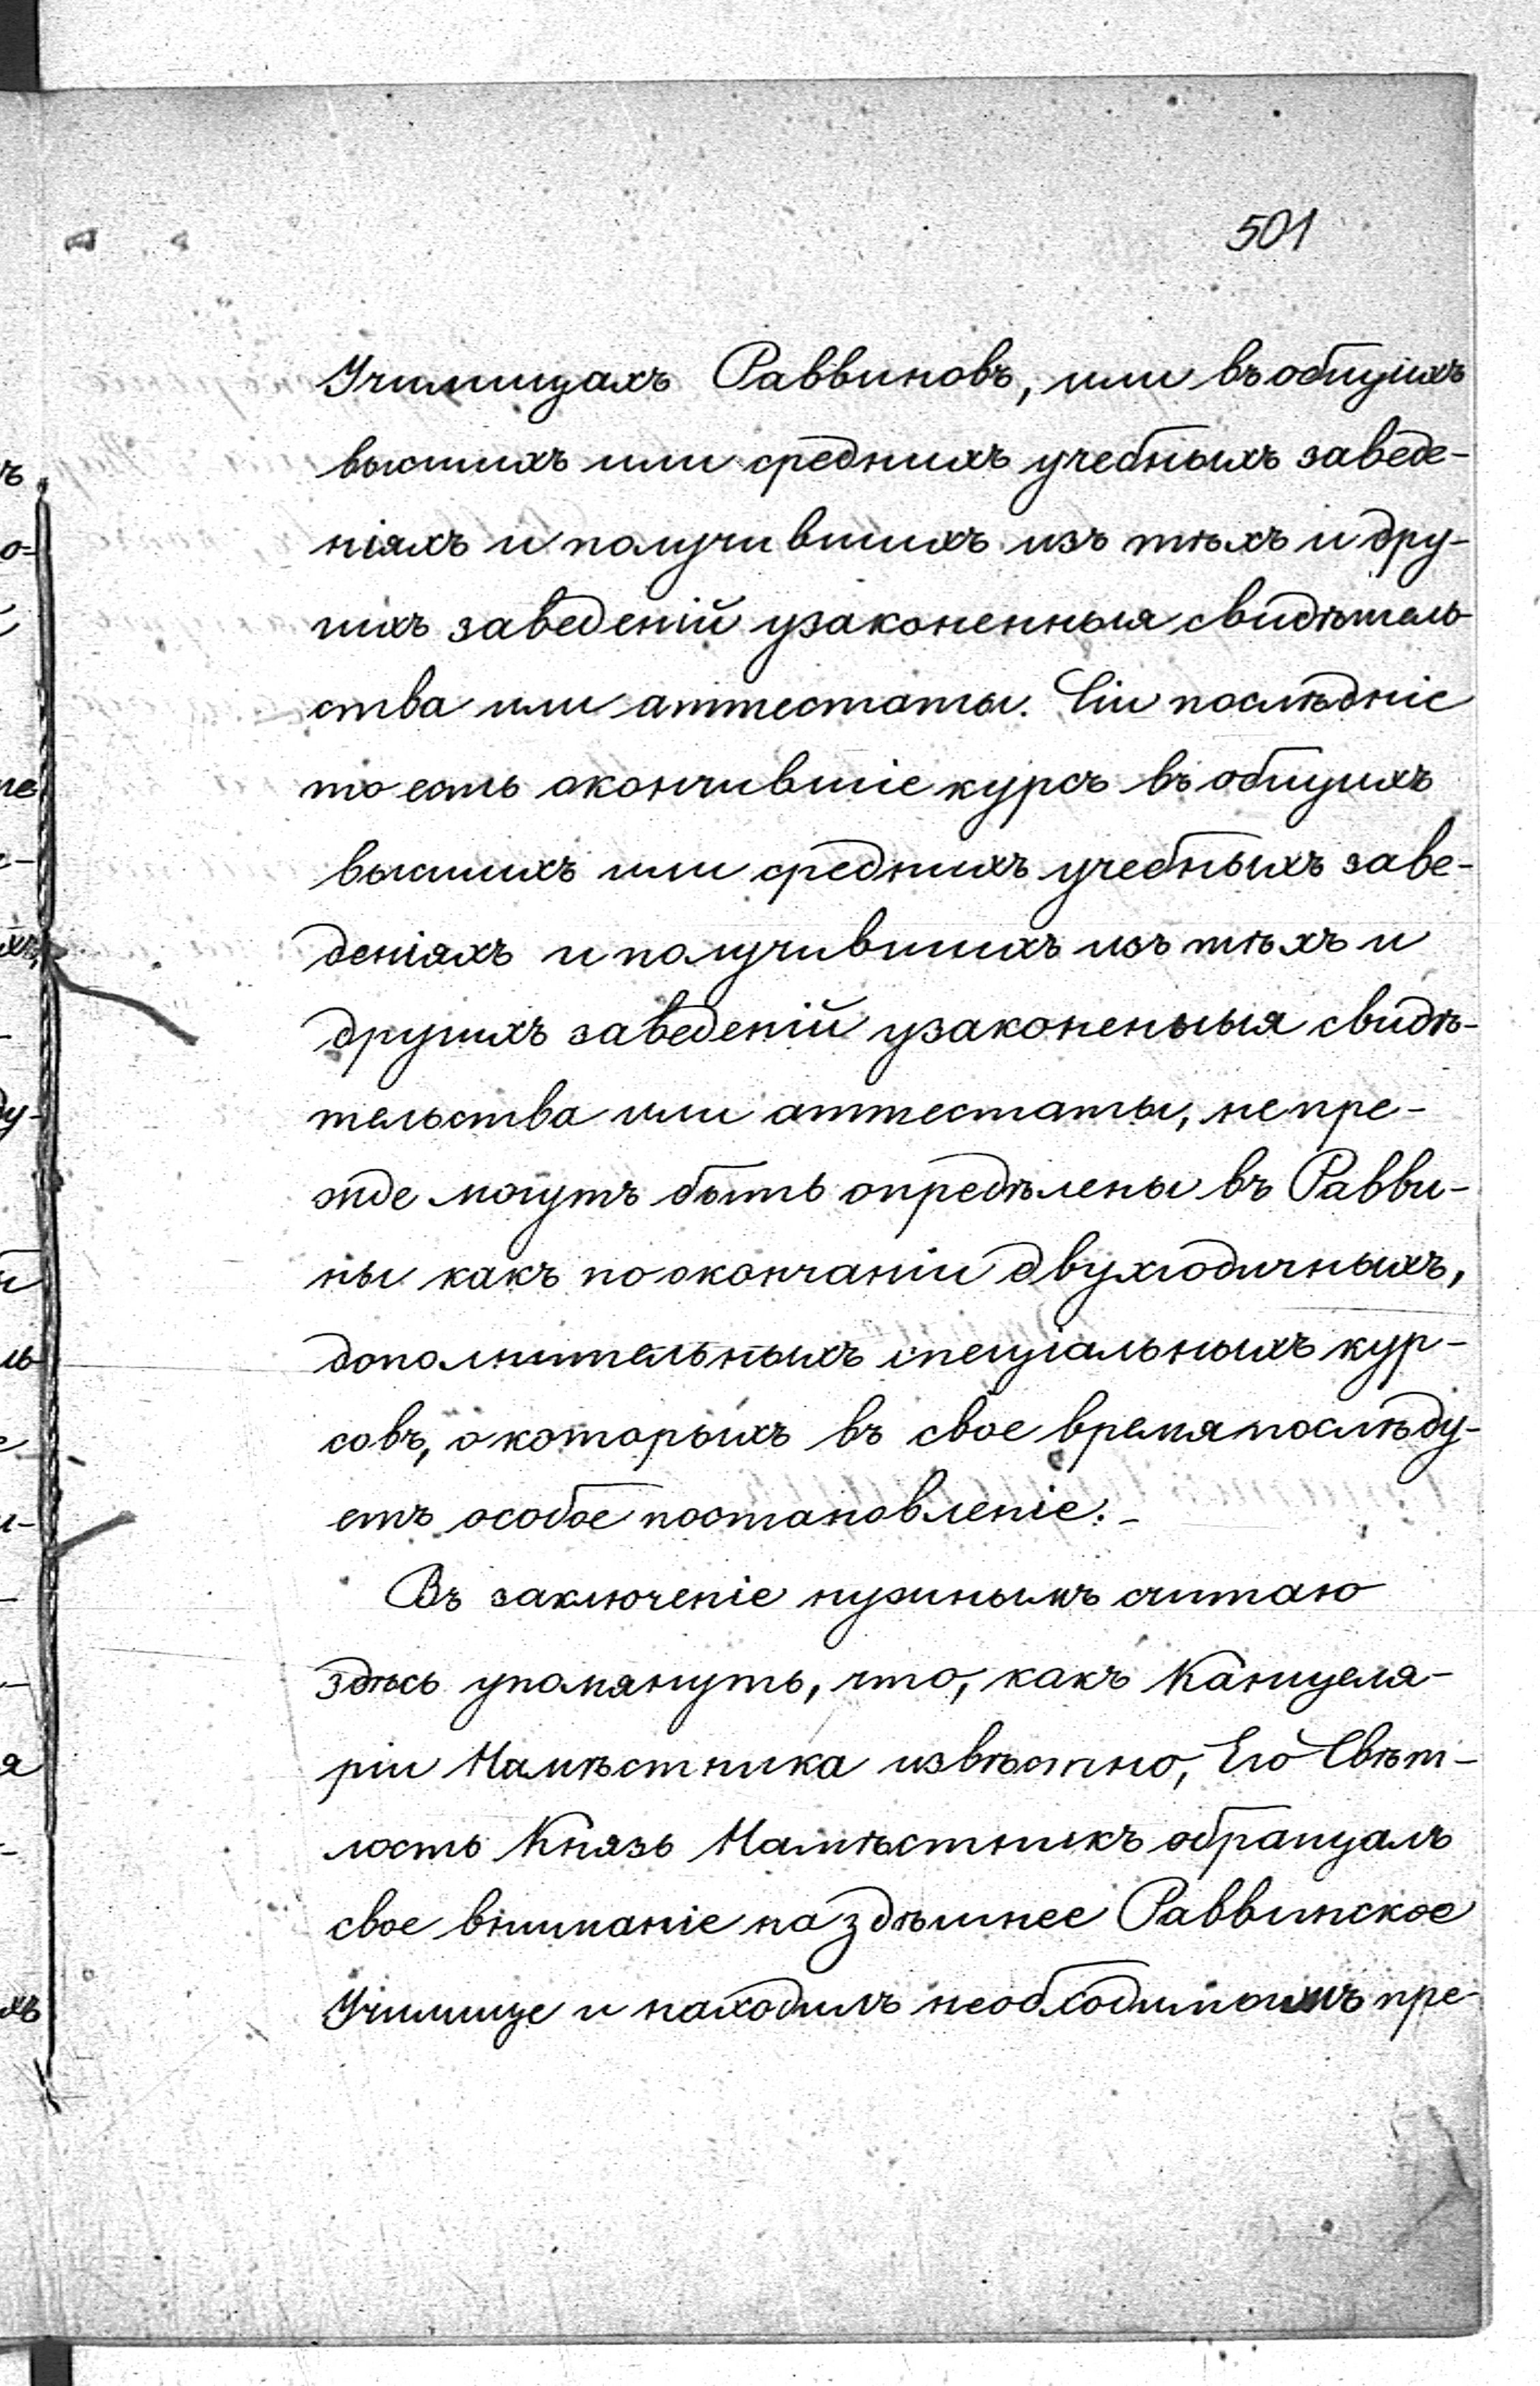 501
Училищахъ Раввиновъ, или въ общихъ
высшихъ или среднихъ учебныхъ заведе-
ніяхъ и получившихъ изъ тѣхъ и дру-
гихъ заведеній узаконенныя свидѣтель-
ства или аттестаты. Сіи послѣдніе
то есть окончившіе курсъ въ общихъ
высшихъ или среднихъ учебныхъ заве-
деніяхъ и получившихъ изъ тѣхъ и
другихъ заведеній узаконенныя свидѣ-
тельства или аттестаты, не пре-
жде могутъ быть опредѣлены въ Равви-
ны какъ по окончаніи двухгодичныхъ,
дополнительныхъ спеціальныхъ кур-
совъ, о которыхъ въ свое время послѣду-
етъ особое постановленіе.-
Въ заключеніе нужнымъ считаю
здѣсь упомянуть, что, какъ Канцеля-
ріи Намѣстника извѣстно, Его Свѣт-
лость Князь Намѣстникъ обращалъ
свое вниманіе на здѣшнее Раввинское
Училище и находилъ необходимымъ пре-